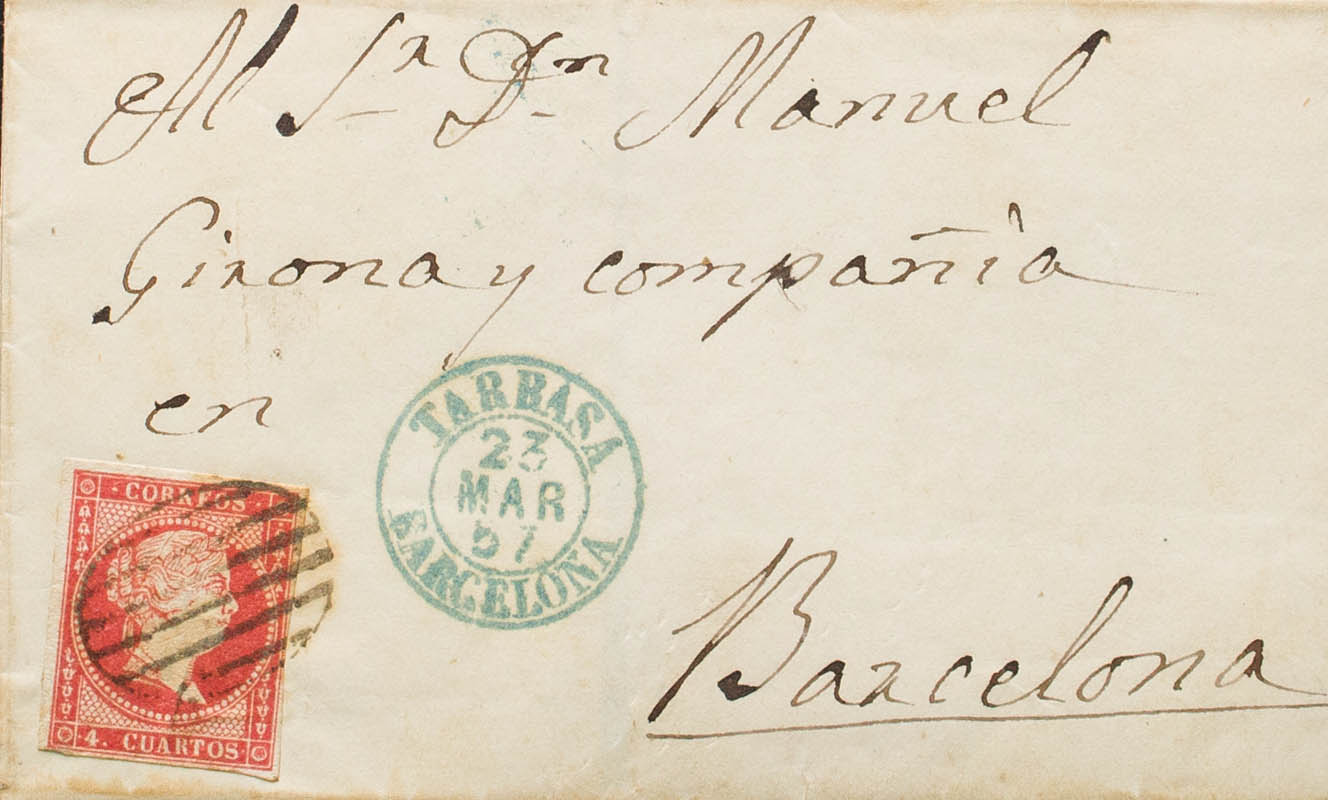 Al Sr Dn Manuel
Girona y compañía
en
Barcelona
TARRASA
23
MAR
57
BARCELONA
CORREOS
4. CUARTOS